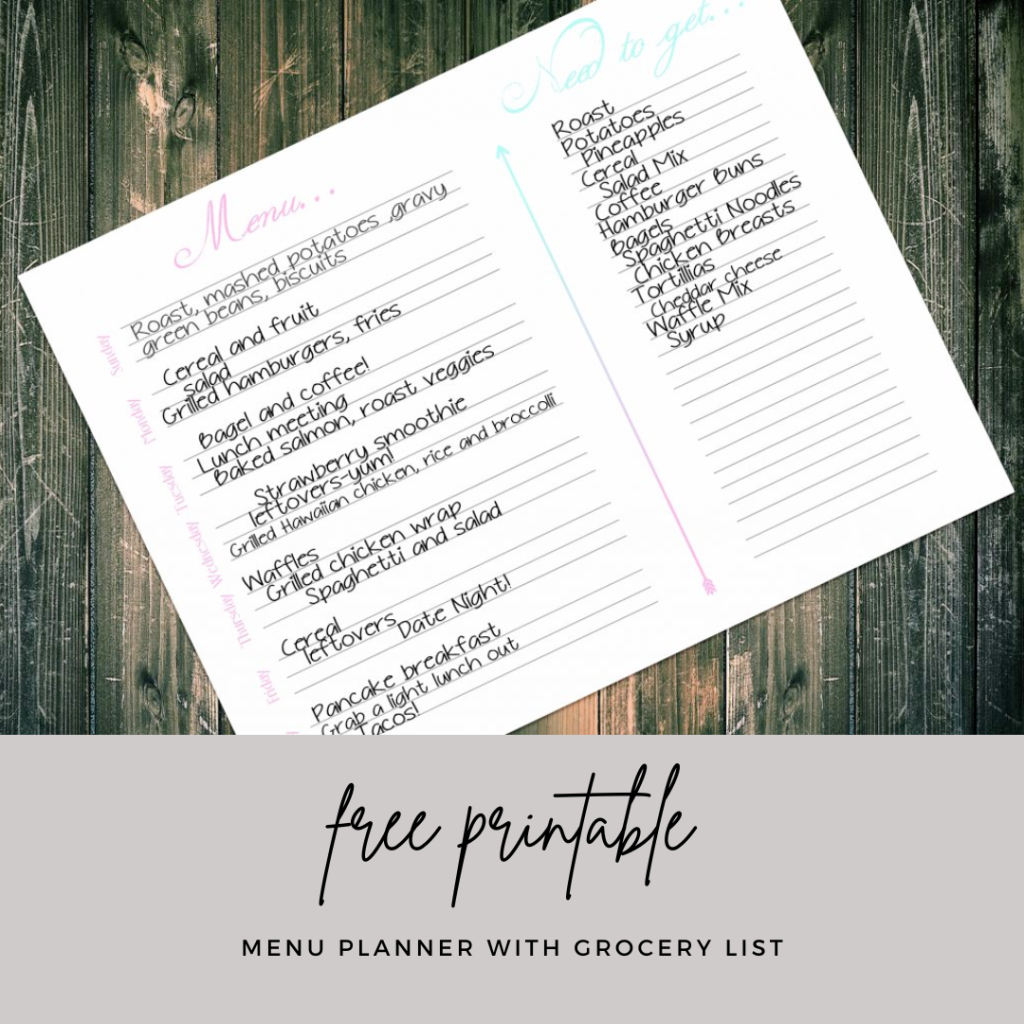 Menu...
Sunday
Roast, mashed potatoes ,gravy
green beans, biscuits
Monday
Cereal and fruit
salad
Grilled hamburgers, fries
Tuesday
Bagel and coffee!
Lunch meeting
Baked salmon, roast veggies
Wednesday
Strawberry smoothie
leftovers-yum!
Grilled Hawaiian chicken, rice and broccolli
Thursday
Waffles
Grilled chicken wrap
Spaghetti and salad
Friday
Cereal
leftovers
Date Night!
Pancake breakfast
Grab a light lunch out
Tacos!
Need to get...
Roast
Potatoes
Pineapples
Cereal
Salad Mix
Coffee
Hamburger Buns
Bagels
Spaghetti Noodles
Chicken Breasts
Tortillias
Cheddar cheese
Waffle Mix
Syrup
free printable
MENU PLANNER WITH GROCERY LIST